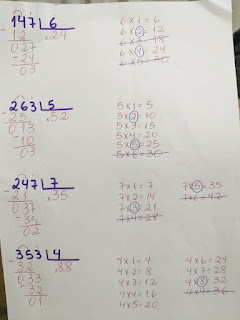 147 6
- 12 x24
027
- 24
03
6 x 1 = 6
6 x 2 = 12
6 x 3 = 18
6 x 4 = 24
6 x 5 = 30
263 5
- 25 x52
013
- 10
03
5 x 1 = 5
5 x 2 = 10
5 x 3 = 15
5 x 4 = 20
5 x 5 = 25
5 x 6 = 30
247 7
- 21 x35
037
- 35
02
7 x 1 = 7
7 x 2 = 14
7 x 3 = 21
7 x 4 = 28
7 x 5 = 35
7 x 6 = 42
353 4
- 32 x88
033
- 32
01
4 x 1 = 4
4 x 2 = 8
4 x 3 = 12
4 x 4 = 16
4 x 5 = 20
4 x 6 = 24
4 x 7 = 28
4 x 8 = 32